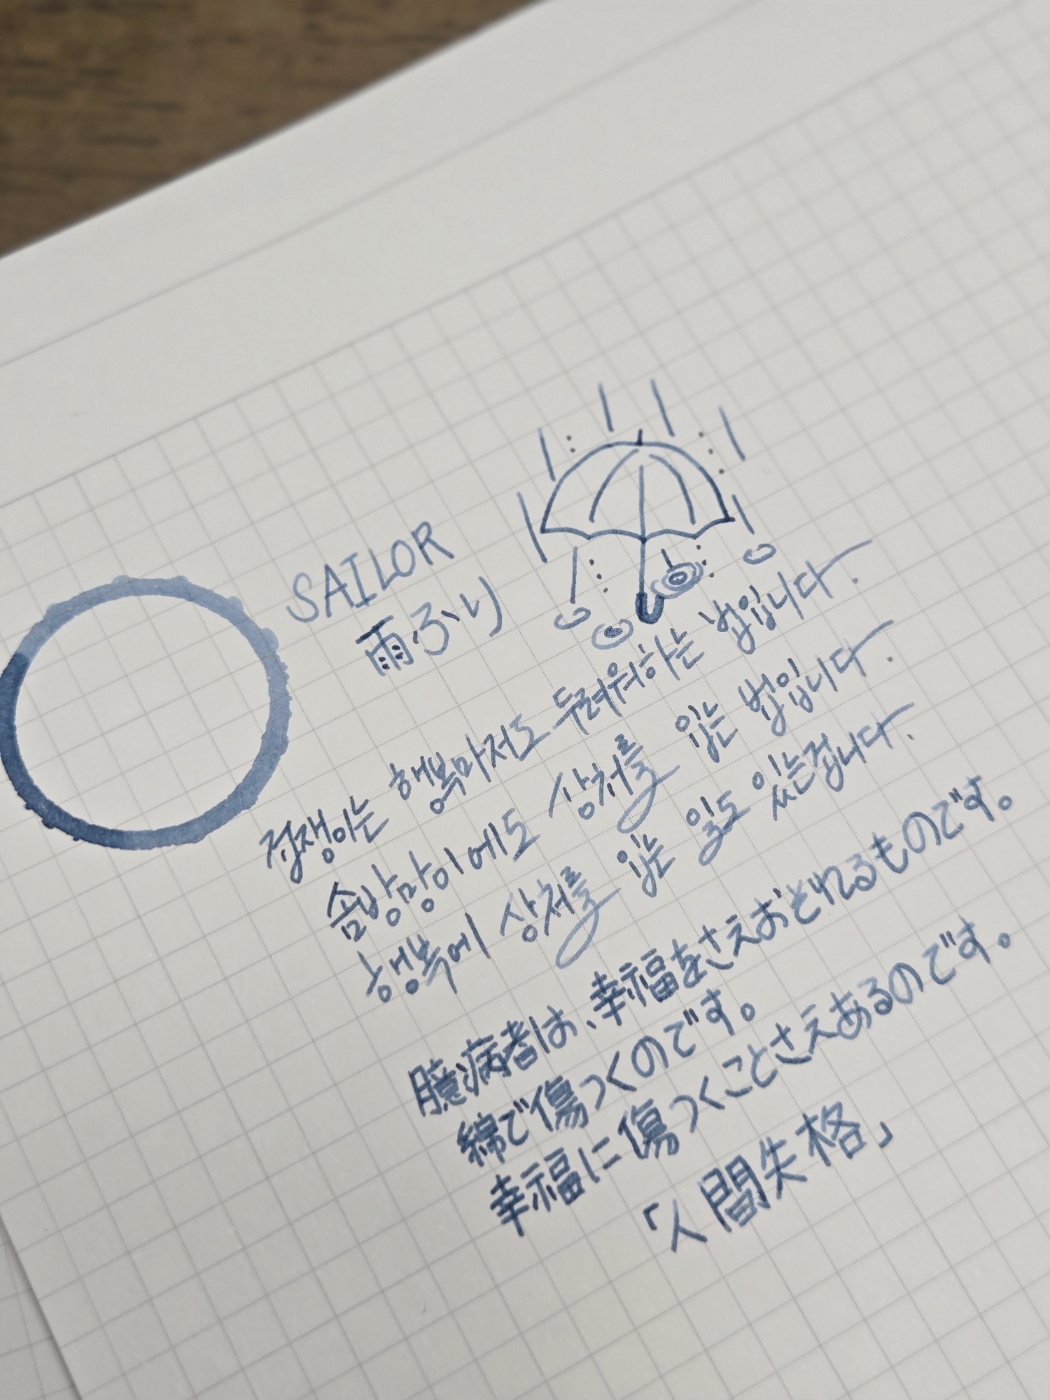 SAILOR
雨ふり
겁쟁이는 행복마저도 두려워하는 법입니다.
솜방망이에도 상처를 입는 법입니다.
행복에 상처를 입는 일도 있는겁니다.
臆病者は、幸福をさえおそれるものです。
綿で傷つくのです。
幸福に傷つくことさえあるのです。
「人間失格」